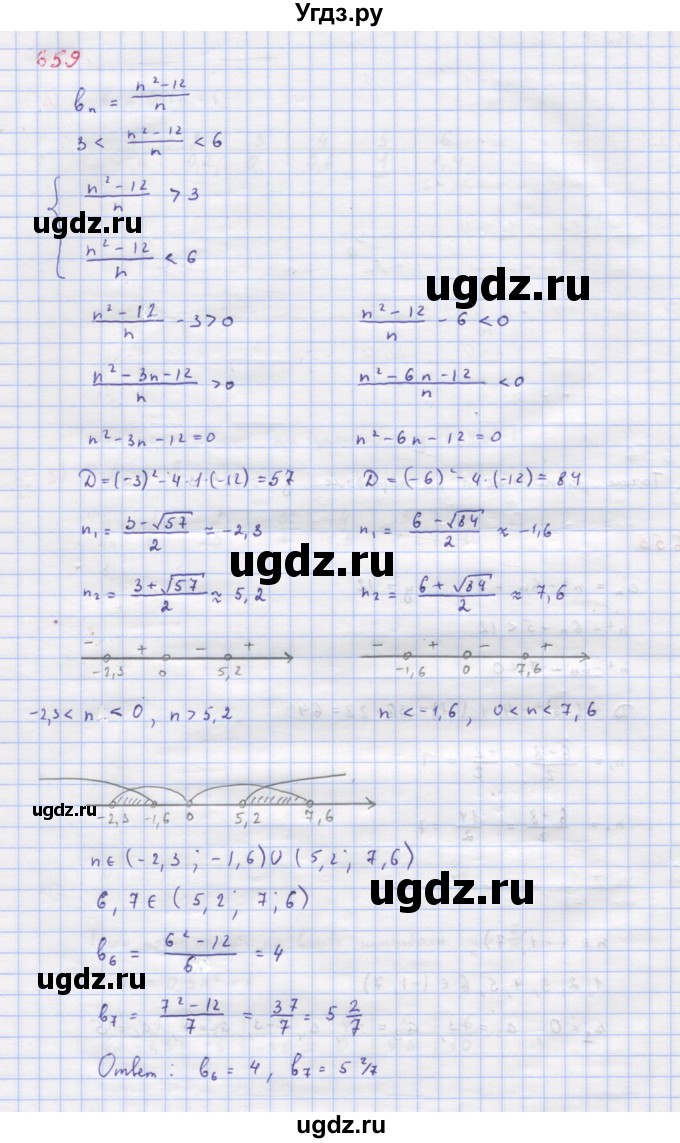 Угдз.ру
659
bₙ = (n²-12)/n
3 < (n²-12)/n < 6
{ (n²-12)/n > 3
ugdz.ru
(n²-12)/n < 6
ugdz.ru
(n²-12)/n - 3 > 0    (n²-12)/n - 6 < 0
(n²-3n-12)/n > 0    (n²-6n-12)/n < 0
n²-3n-12=0    n²-6n-12=0
D=(-3)²-4·1·(-12)=57    D=(-6)²-4·(-12)=84
n₁ = (3-√57)/2 ≈ -2,3    n₁ = (6-√84)/2 ≈ -1,6
ugdz.ru
n₂ = (3+√57)/2 ≈ 5,2    n₂ = (6+√84)/2 ≈ 7,6
- + - +    - + - +
-2,3 0 5,2    -1,6 0 7,6
-2,3 < n < 0, n > 5,2    n < -1,6, 0 < n < 7,6
ugdz.ru
-2,3 -1,6 0 5,2 7,6
n ∈ (-2,3; -1,6) ∪ (5,2; 7,6)
6, 7 ∈ (5,2; 7;6)
ugdz.ru
b₆ = (6²-12)/6 = 4
ugdz.ru
b₇ = (7²-12)/7 = 37/7 = 5 2/7
Ответ: b₆ = 4, b₇ = 5 2/7
ugdz.ru